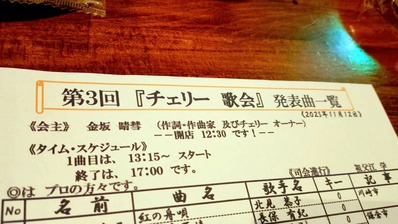 第3回 『チェリー 歌会』 発表曲一覧
(2023年11月12日)
《会主》 金坂 晴彗 (作詞・作曲家 及びチェリー オーナー)
――開店 12:30 です!――
《タイム・スケジュール》
1曲目は、13:15〜 スタート
終了は、17:00 です。
◎は プロの方々です。
《司会進行》
No 名前 曲名 歌手名 キー 記事
紅の舟唄 北見 恭子 0 川崎市
長保 有紀 0